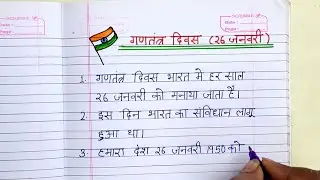 गणतंत्र दिवस (26 जनवरी)
1. गणतंत्र दिवस भारत में हर साल
26 जनवरी को मनाया जाता है।
2. इस दिन भारत का संविधान लागू
हुआ था।
3. हमारा देश 26 जनवरी 1950 को